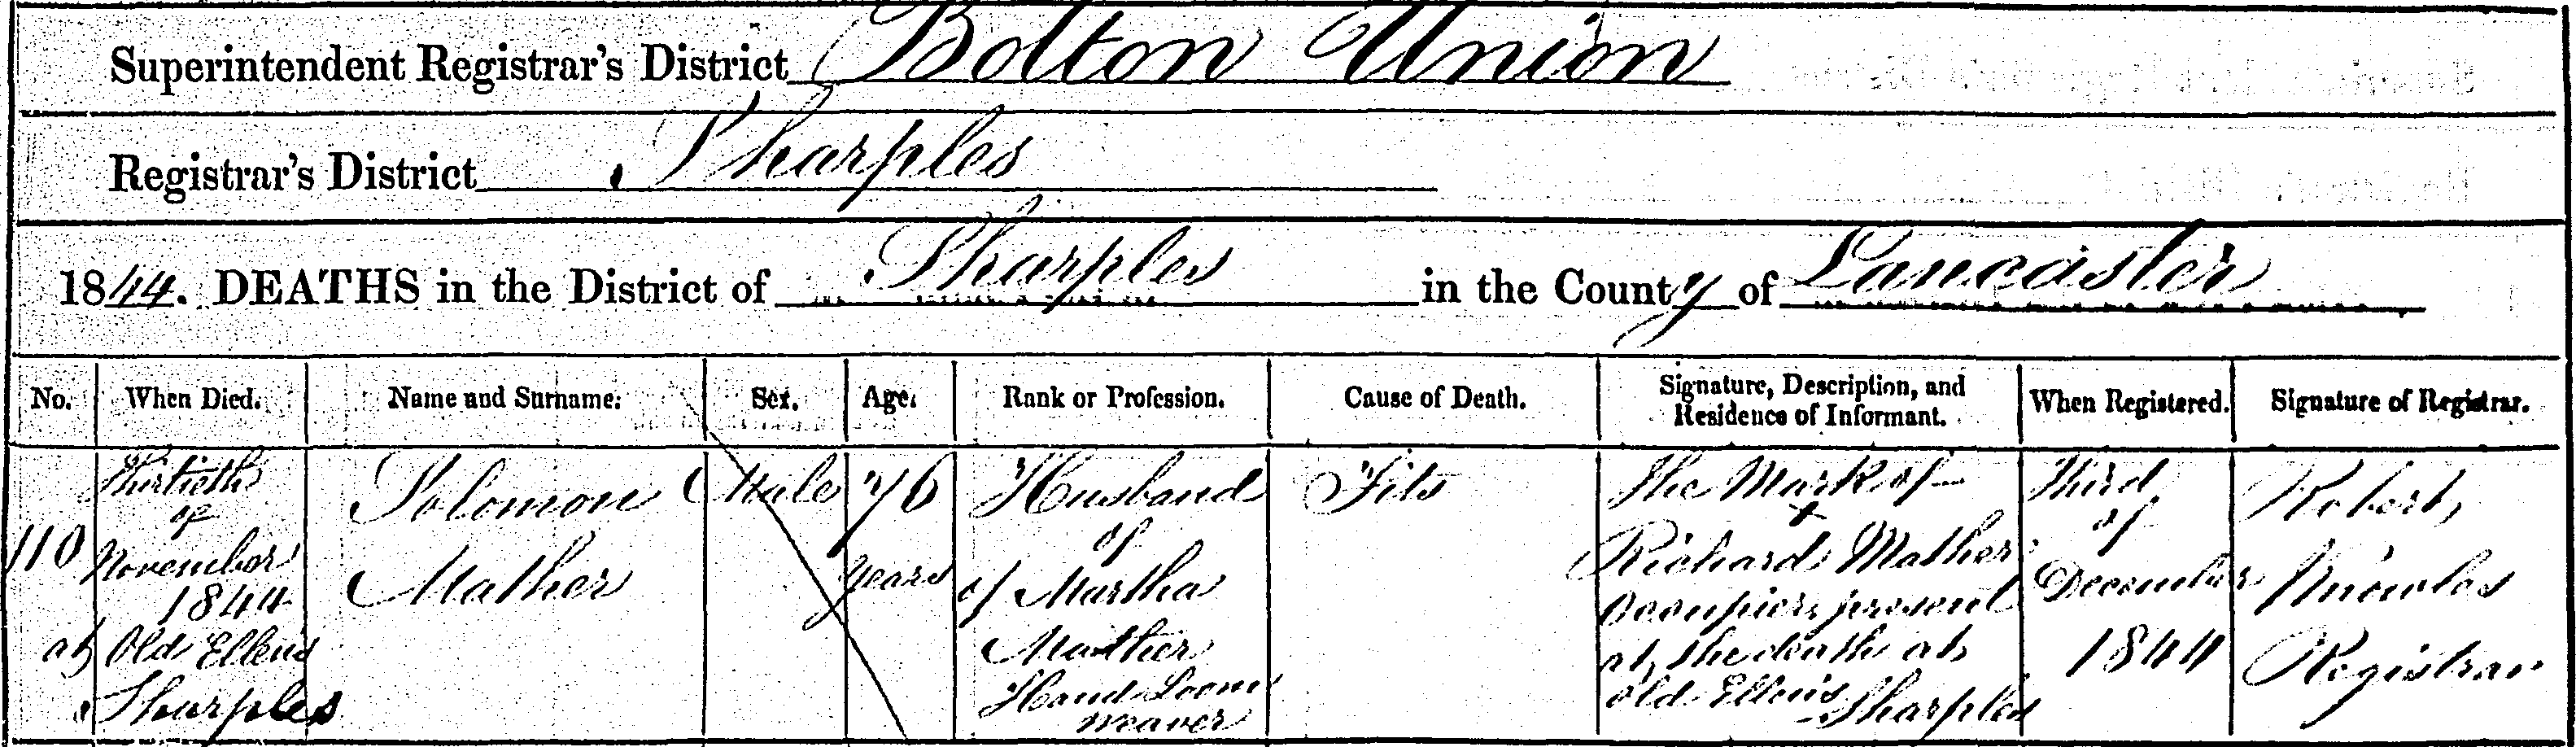 Superintendent Registrar's District Bolton Union
Registrar's District Sharples
1844. DEATHS in the District of Sharples in the County of Lancaster
No. When Died. Name and Surname. Sex. Age. Rank or Profession. Cause of Death. Signature, Description, and Residence of Informant. When Registered. Signature of Registrar.
110
Thirtieth
of
November
1844
at Old Ellens
Sharples
Solomon
Mather
Male
76
years
Husband
of
of Martha
Mather
Hand Loom
weaver
Fits
The Mark of
X
Richard Mather
Occupier, present
at the death at
old Ellens
Sharples
Third
of
December
1844
Robert
Knowles
Registrar